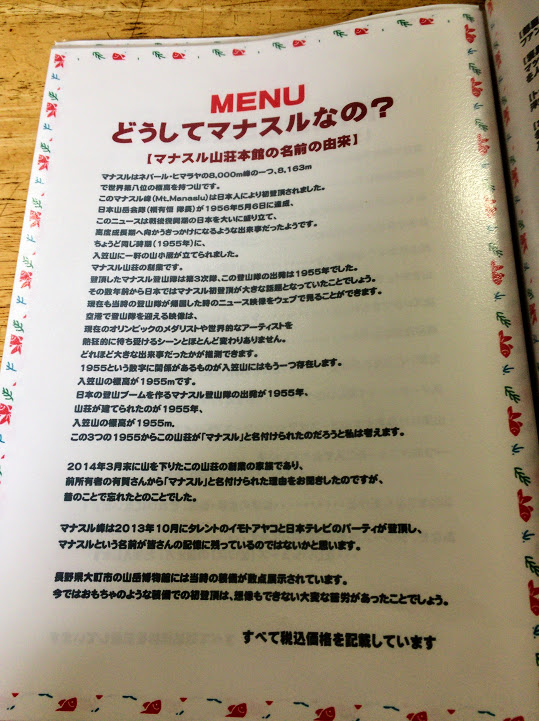 MENU
どうしてマナスルなの？
【マナスル山荘本館の名前の由来】
マナスルはネパール・ヒマラヤの8,000m峰の一つ、8,163m
で世界第八位の標高を持つ山です。
このマナスル峰(Mt.Manaslu)は日本人により初登頂されました。
日本山岳会隊(槇有恒 隊長)が1956年5月6日に達成、
このニュースは戦後復興期の日本を大いに盛り立て、
高度成長期へ向かうきっかけになるような出来事だったようです。
ちょうど同じ時期(1955年)に、
入笠山に一軒の山小屋が立てられました。
マナスル山荘の創業です。
登頂したマナスル登山隊は第3次隊、この登山隊の出発は1955年でした。
その数年前から日本ではマナスル初登頂が大きな話題となっていたことでしょう。
現在も当時の登山隊が帰国した時のニュース映像をウェブで見ることができます。
空港で登山隊を迎える映像は、
現在のオリンピックのメダリストや世界的なアーティストを
熱狂的に待ち受けるシーンとほとんど変わりありません。
どれほど大きな出来事だったかが推測できます。
1955という数字に関係があるものが入笠山にはもう一つ存在します。
入笠山の標高が1955mです。
日本の登山ブームを作るマナスル登山隊の出発が1955年、
山荘が建てられたのが1955年、
入笠山の標高が1955m、
この3つの1955からこの山荘が「マナスル」と名付けられたのだろうと私は考えます。
2014年3月末に山を下りたこの山荘の創業の家族であり、
前所有者の有賀さんから「マナスル」と名付けられた理由をお聞きしたのですが、
昔のことで忘れたとのことでした。
マナスル峰は2013年10月にタレントのイモトアヤコと日本テレビのパーティが登頂し、
マナスルという名前が皆さんの記憶に残っているのではないかと思います。
長野県大町市の山岳博物館には当時の装備が数点展示されています。
今ではおもちゃのような装備での初登頂は、想像もできない大変な苦労があったことでしょう。
すべて税込価格を記載しています